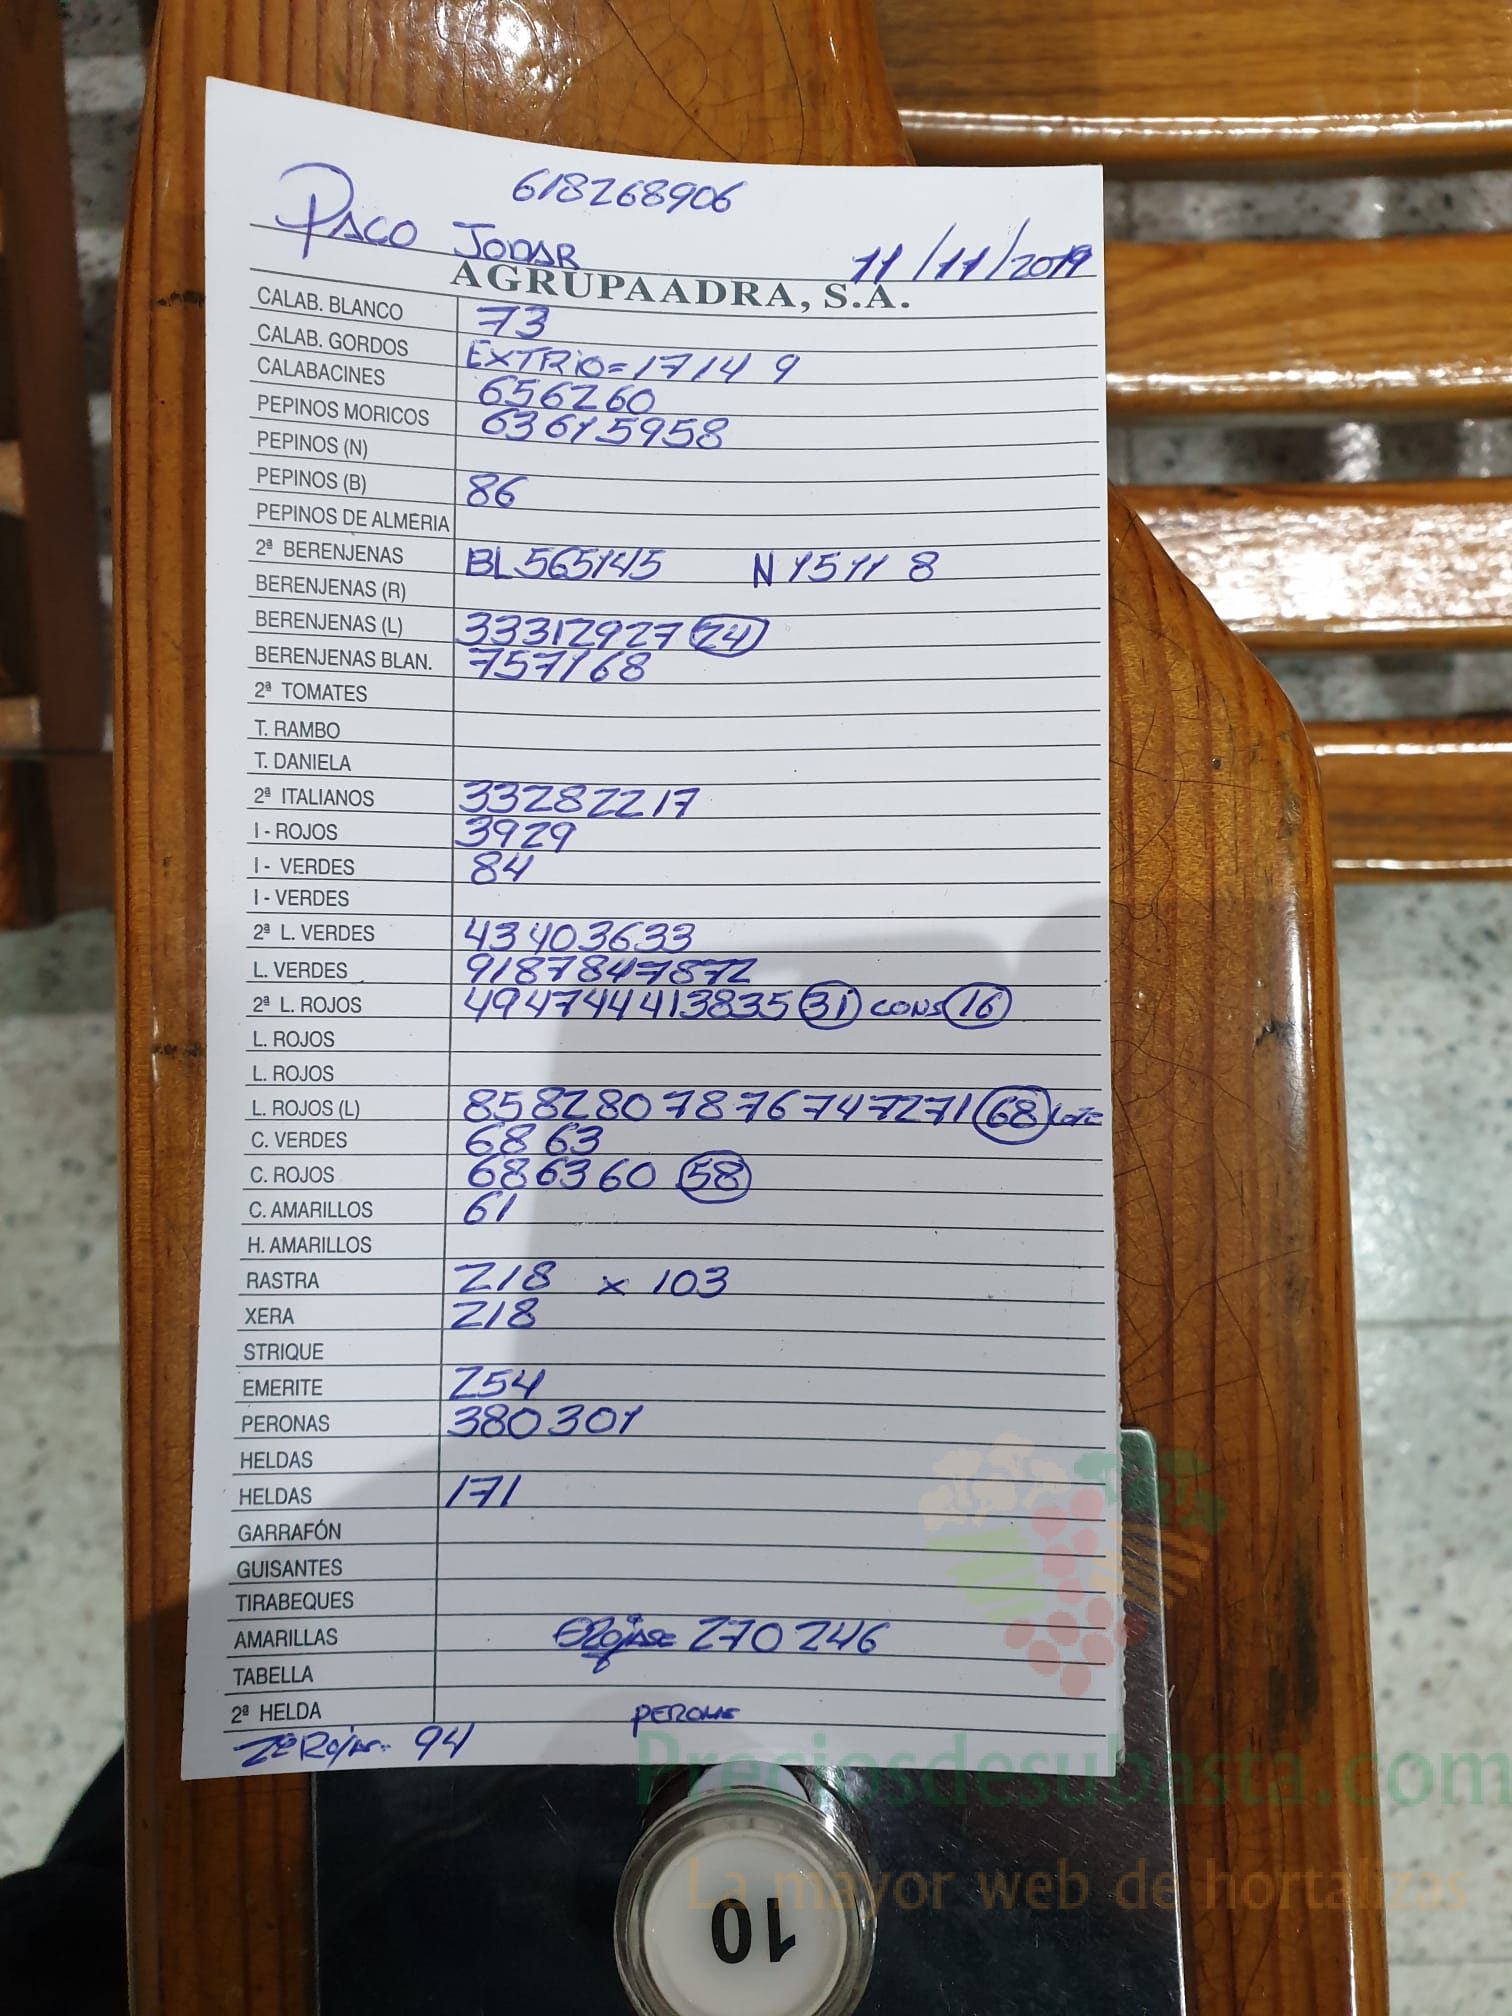 618268906
PACO JODAR 11/11/2019
AGRUPAADRA, S.A.
CALAB. BLANCO 73
CALAB. GORDOS EXTRIO=1714 9
CALABACINES 656260
PEPINOS MORICOS 63615958
PEPINOS (N)
PEPINOS (B) 86
PEPINOS DE ALMERIA
2ª BERENJENAS BL 565145 N 1511 8
BERENJENAS (R)
BERENJENAS (L) 33312927 24
BERENJENAS BLAN. 757168
2ª TOMATES
T. RAMBO
T. DANIELA
2ª ITALIANOS 33282217
I - ROJOS 3929
I - VERDES 84
I - VERDES
2ª L. VERDES 43403633
L. VERDES 9187847872
2ª L. ROJOS 494744413835 31 CONS 16
L. ROJOS
L. ROJOS
L. ROJOS (L) 8582807876747271 68
C. VERDES 6863
C. ROJOS 686360 58
C. AMARILLOS 61
H. AMARILLOS
RASTRA 218 x 103
XERA 218
STRIQUE
EMERITE 254
PERONAS 380301
HELDAS
HELDAS 171
GARRAFÓN
GUISANTES
TIRABEQUES
AMARILLAS 270 246
TABELLA
2ª HELDA
94
Preciosdesubasta.com
La mayor web de hortalizas
10